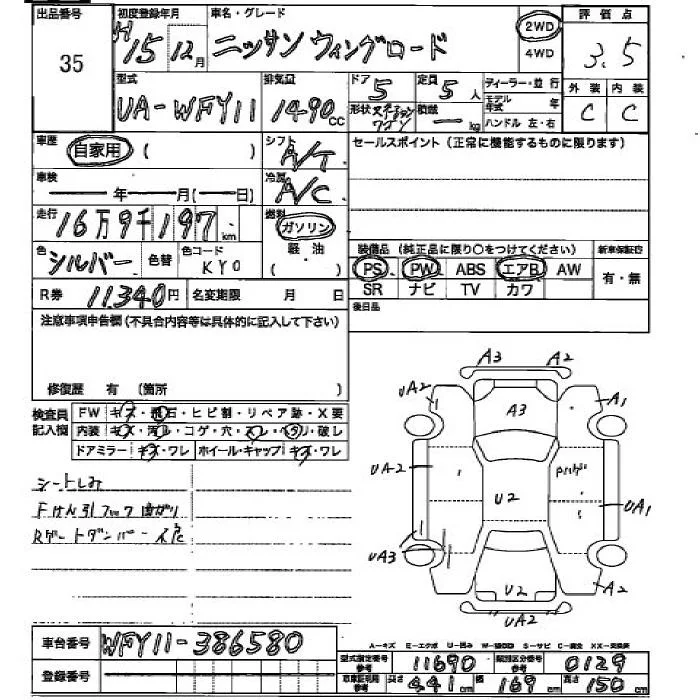 出品番号 初度登録年月 車名・グレード 評価点
35 H15 12月 ニッサン ウィングロード 2WD 3.5
4WD
型式 排気量 ドア 定員 ディーラー・並行 外装 内装
UA-WFY11 1490cc 5 5人 モデル年式 年 C C
形状 ステーションワゴン 積載 ー kg ハンドル 左・右
車歴 自家用 ( ) シフト A/T セールスポイント(正常に機能するものに限ります)
車検 ー年ー月(ー日) 冷房 A/C
走行 16万9千197km 燃料 ガソリン
軽油
( )
色 シルバー 色替 色コード KY0 装備品(純正品に限り○をつけてください) 新車保証書
PS PW ABS エアB AW 有・無
R券 11,340円 名変期限 月 日 SR ナビ TV カワ
注意事項申告欄(不具合内容等は具体的に記入して下さい) 後日品
修復歴 有 (箇所 )
A3 A2
UA2 A3 A1
検査員 FW キズ・飛石・ヒビ割・リペア跡・X要
記入欄 内装 キズ・汚れ・コゲ・穴・スレ・ヘタリ・破レ
ドアミラー キズ・ワレ ホイール・キャップ キズ・ワレ
UA2
シートしみ
U2 UA1
Fけん引フック曲がり
Rゲートダンパー不良
UA3 U2 A2
UA2
車台番号 WFY11-386580
A-キズ E-エクボ U-凹み W-補修跡 S-サビ C-腐食 XX-交換済
登録番号 型式指定番号 参考 11690 類別区分番号 参考 0129
車庫証明用 参考 長さ 441cm 幅 169cm 高さ 150cm